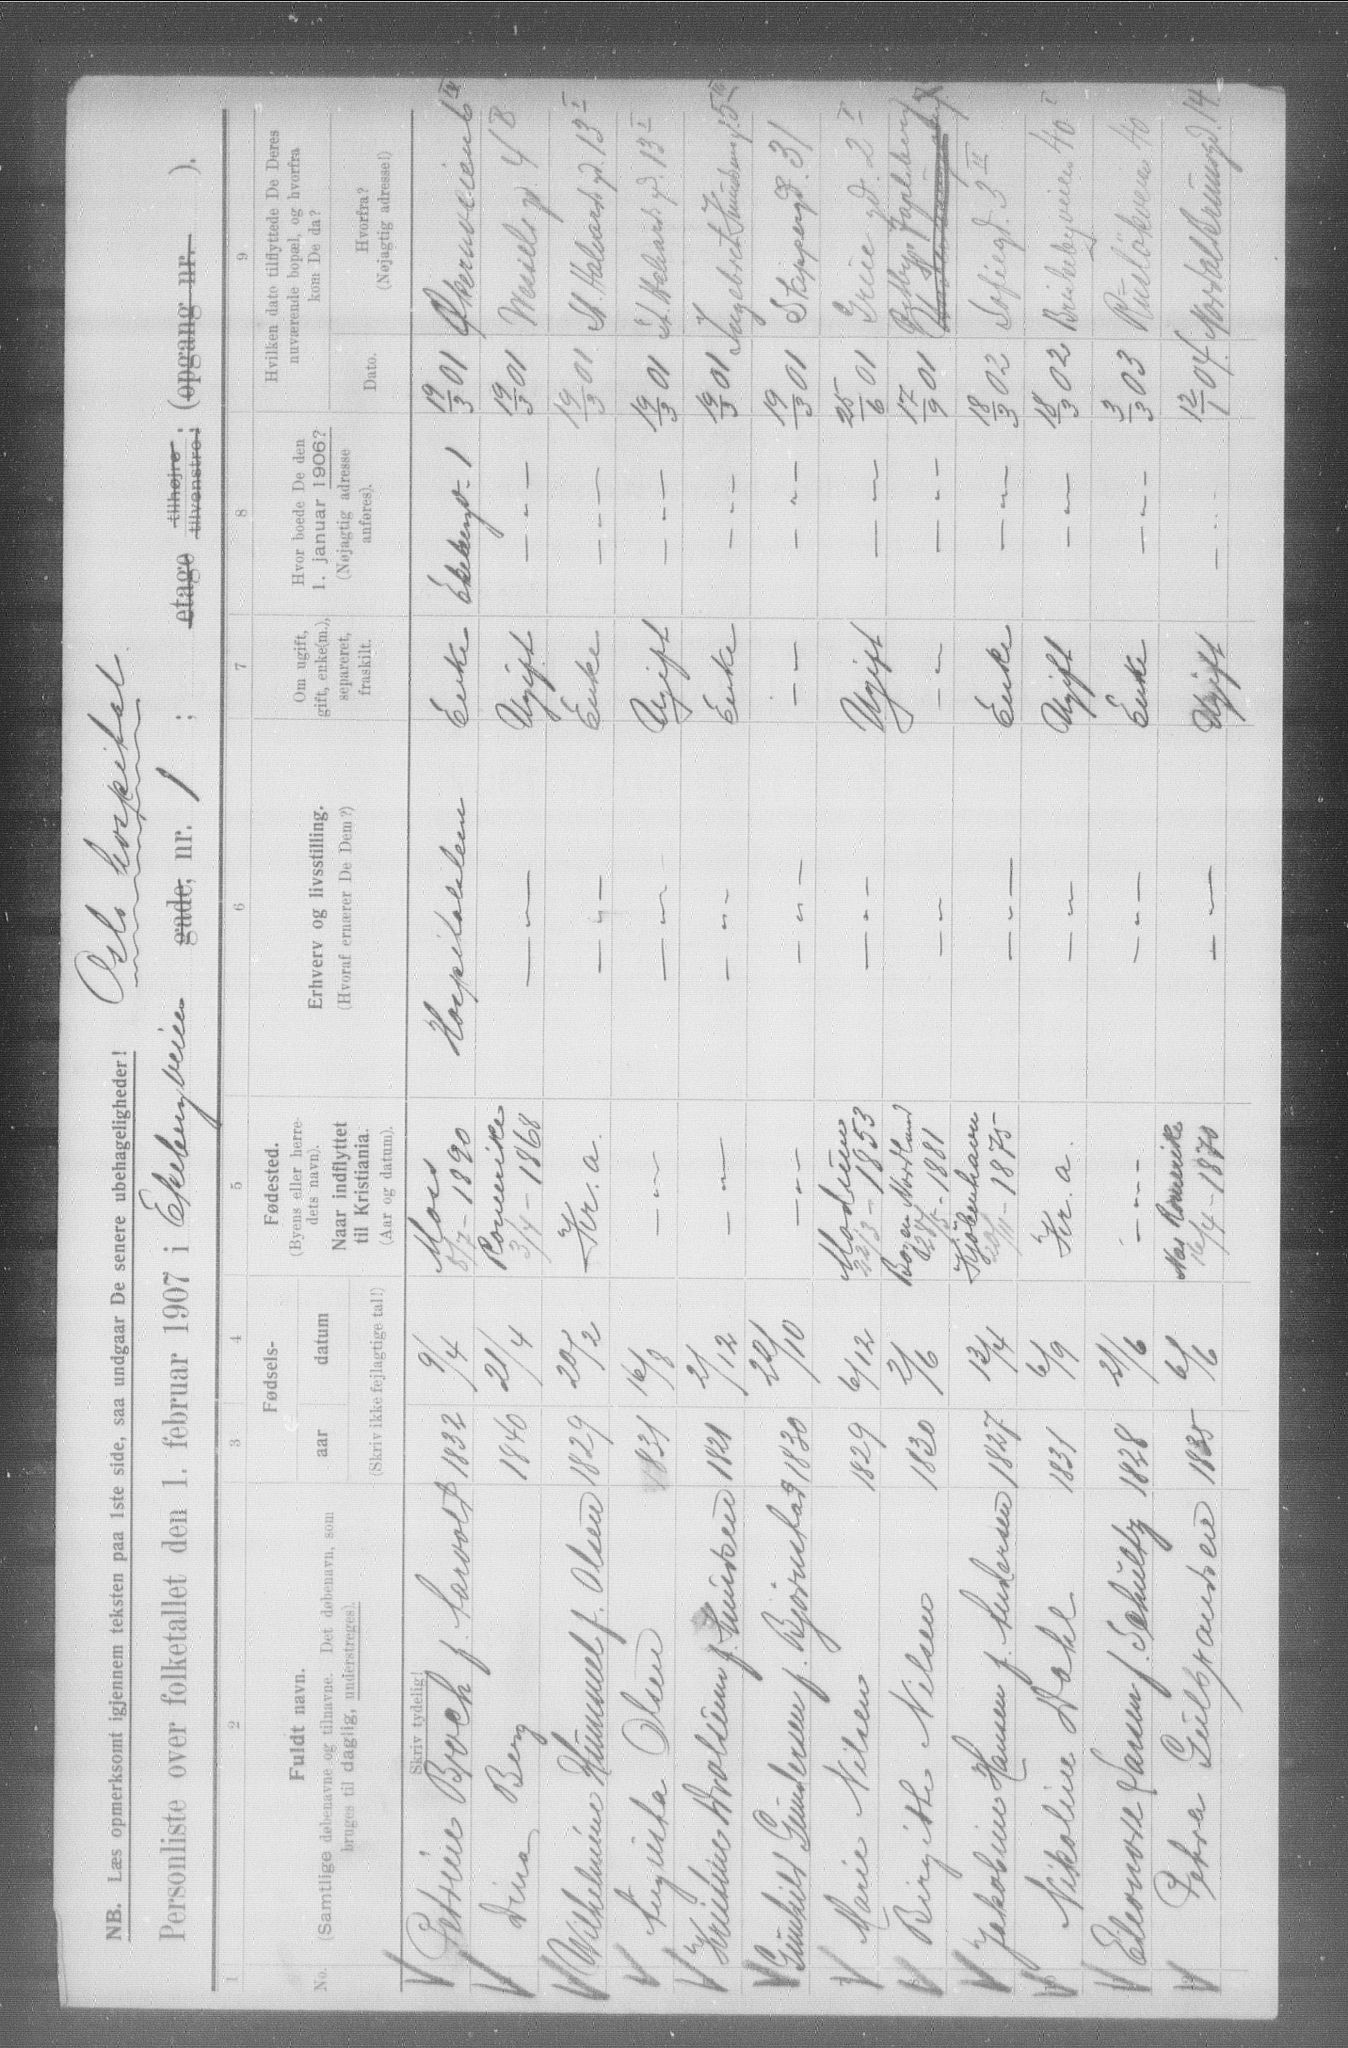 Oslo hospital
NB. Læs opmerksomt igjennem teksten paa 1ste side, saa undgaar De senere ubehageligheder!
Personliste over folketallet den 1. februar 1907 i Ekebergveien gade, nr. 1 ; etage tilhøjre tilvenstre; (opgang nr. ).
1 2 3 4 5 6 7 8 9
No.
Fuldt navn.
(Samtlige døbenavne og tilnavne. Det døbenavn, som
bruges til daglig, understreges).
Skriv tydelig!
Fødsels-
aar datum
(Skriv ikke fejlagtige tal!)
Fødested.
(Byens eller herre-
dets navn).
Naar indflyttet
til Kristiania.
(Aar og datum).
Erhverv og livsstilling.
(Hvoraf ernærer De Dem?)
Om ugift,
gift, enke(m.),
separeret,
fraskilt.
Hvor boede De den
1. januar 1906?
(Nøjagtig adresse
anføres).
Hvilken dato tilflyttede De Deres
nuværende bopæl, og hvorfra
kom De da?
Dato.
Hvorfra?
(Nøjagtig adresse!)
Petrine Boch f. Farvolf 1832 9/4 Moss 1890 Hospitalslem Enke Ekebergv. 1 19/3 01 Økernveien 6 IV
Dina Berg 1840 21/4 Romerike 3/4 - 1868 — " — Ugift — " — 19/3 01 Wessels gd. 4
Wilhelmine Hummel f. Olsen 1829 20/2 Kr.a. — " — Enke — " — 19/3 01 St. Halvards gd. 13 I
Augusta Olsen 1831 16/8 — " — — " — Ugift — " — 19/3 01 St. Halvards gd. 13 I
f. Knudsen 1821 2/12 — " — — " — Enke — " — 19/3 01
Gunhild Gundersen f. Bjørnstad 1830 22/10 — " — — " — — " — — " — 19/3 01 Skippergd. 31
Marie Nilsen 1829 6/12 Modum 22/3 - 1853 — " — Ugift — " — 25/6 01 Grüne gd. 2 V
Birgitte Nilsen 1830 2/6 Nordland 1881 — " — — " — — " — 17/9 01
Jakobine Hansen f. Andersen 1827 13/4 Kjøbenhavn 20/11 - 1875 — " — Enke — " — 18/3 02 Sofiegd 3 IV
Nikoline Dahl 1831 6/9 Kr.a. — " — Ugift — " — 18/3 02 Briskebyveien 40 I
Eleonore f. Schultz 1828 21/6 — " — — " — Enke — " — 3/3 03 Ruseløkveien 40
Petra Gulbrandsen 1835 6/6 Nes Romerike 16/4 - 1870 — " — Ugift — " — 12/1 04. Nordal Brunsgd. 14.